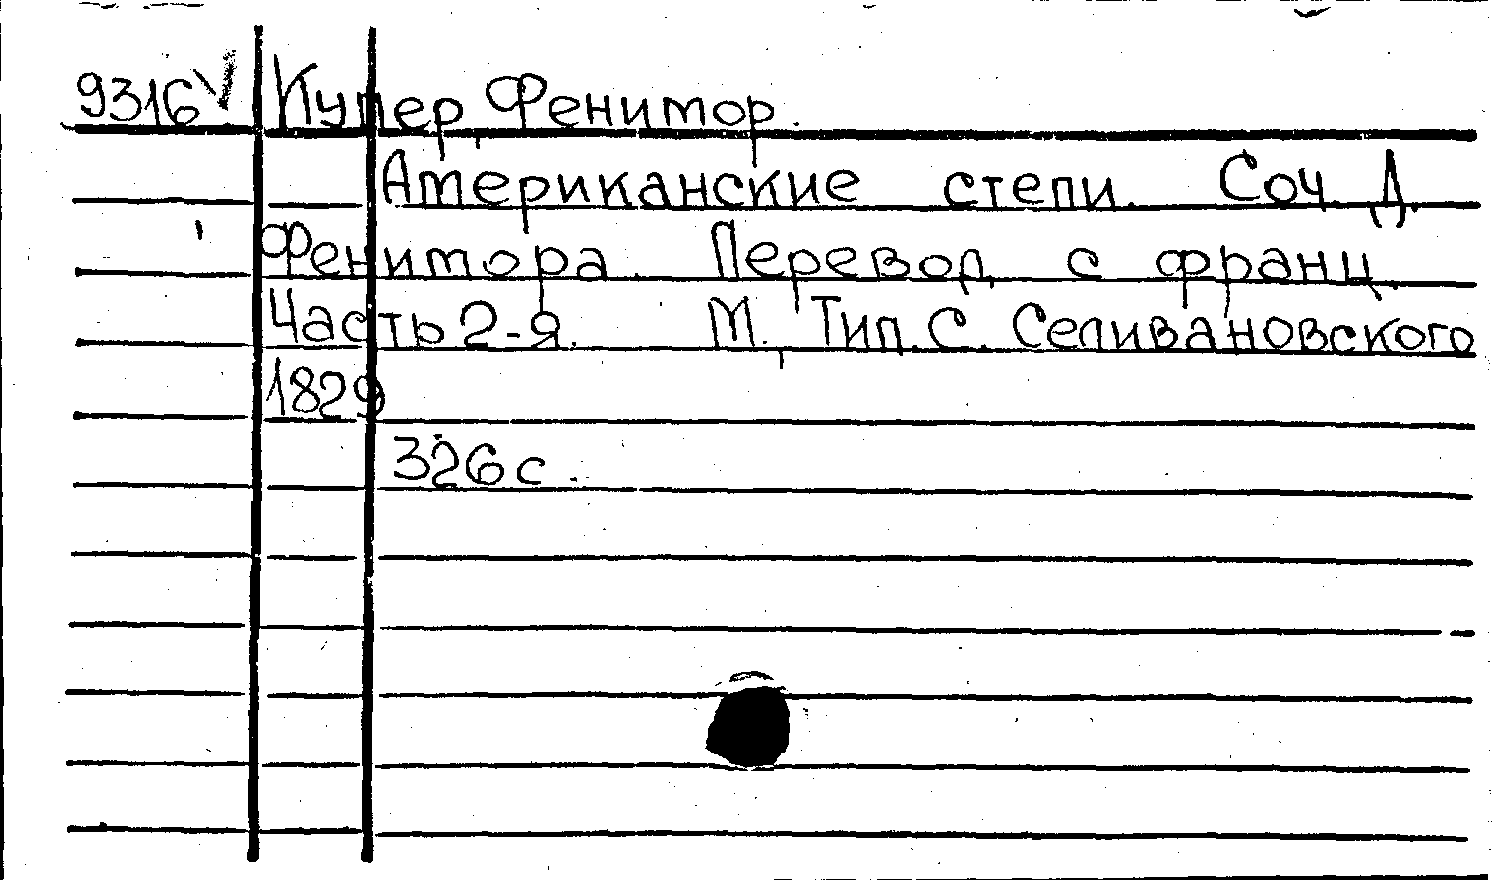 9316 V Купер, Фенитор.
Американские степи. Соч. Д.
Фенитора. Перевод с франц.
Часть 2-я. М., Тип. С. Селивановского
1829
326 с.